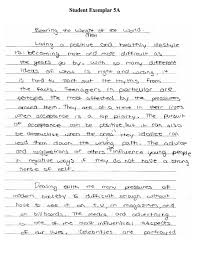 Student Exemplar 5A
Bearing the Weight of the World
Living a positive and healthy lifestyle
is becoming more and more difficult as
the years go by. With so many different
ideas of what is right and wrong it
is hard to sort out the myths from
the facts. Teenagers in particular are
perhaps the most affected by the pressures
around them. They are at a time in their lives
when acceptance is a top priority. The pursuit
of acceptance can be positive, but it can also
be destructive when the ones they idolize can
lead them down the wrong path. The opinions
and suggestions of others influence young people
in negative ways if they do not have a strong
sense of self.
Dealing with the many pressures of
modern society is difficult enough without
have to see it on T.V., in magazines, and
on billboards. The media and advertising
is one of the most influential aspects
of our lives. Celebrities are portrayed